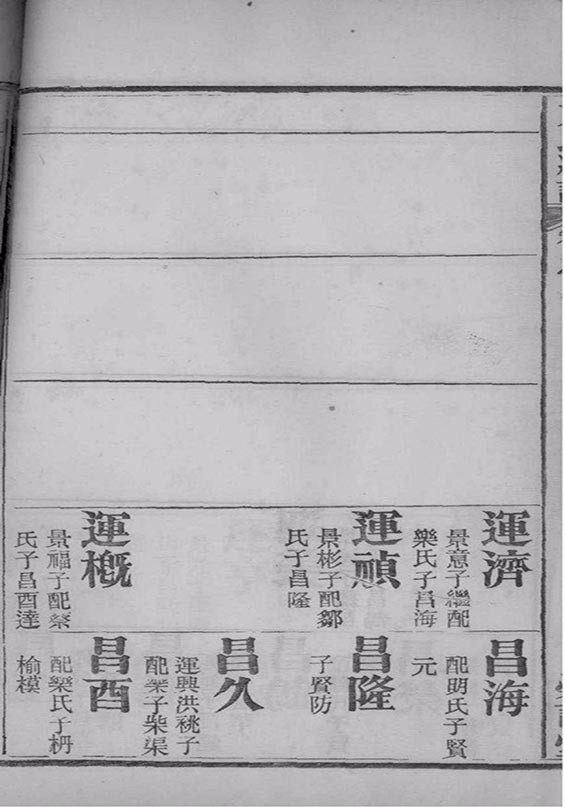 運濟
景意子繼配
樂氏子昌海
運禎
景彬子配鄒
氏子昌隆
運概
景福子配蔡
氏子昌酉達
昌海
配明氏子賢
元
昌隆
子賢防
昌久
運興洪祧子
配子柴渠
昌酉
配欒氏子枬
榆模